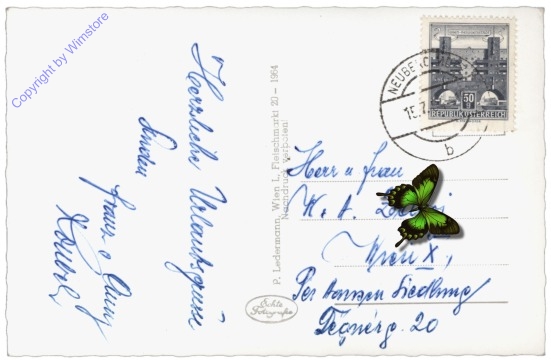 Copyright by Wimstore
Herzliche Urlaubsgrüße
senden
Franz u.
P. Ledermann, Wien I., Fleischmarkt 20 - 1954
Nachdruck verboten!
Echte
Fotografie
50
REPUBLIK ÖSTERREICH
15.7.
b
Herr u Frau
K. A.
Wien X,
Per Hansen Siedlung
Tegnérg. 20